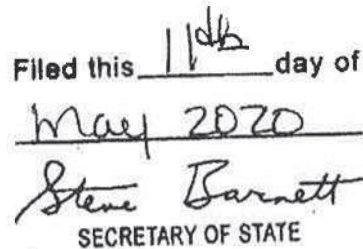 Filed this 11th day of
May 2020
Steve Barnett
SECRETARY OF STATE